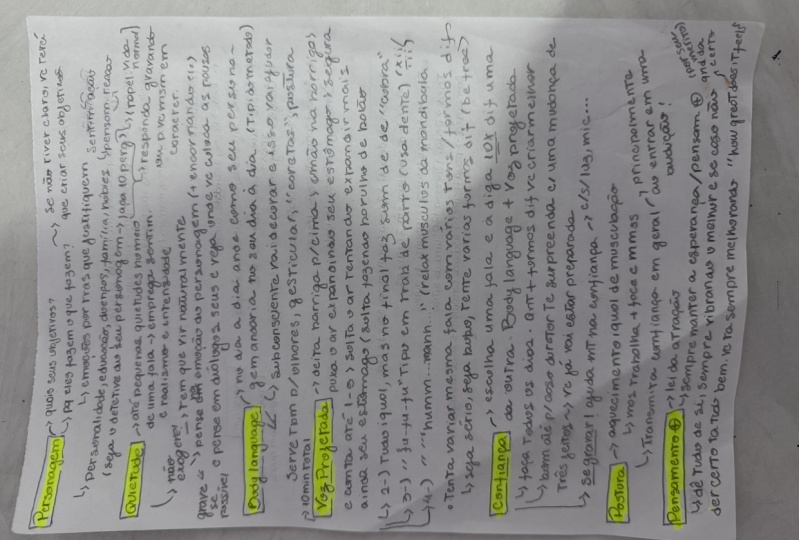 Personagem → quais seus objetivos? ~> se não tiver claro, vc terá
↳ pq eles fazem o que fazem? que criar seus objetivos
↳ emoções por trás que justifiquem sentim→ação
↳ personalidade, educação, doenças, família, hobies
(seja o detetive do seu personagem → faça 10 perg)
Quietude → até pequenas quietudes no meio
de uma fala → emprega sentim.
e realismo e intensidade
↳ não exagere → tem que vir naturalmente
↳ (papel vida normal)
↳ responda gravando
caracter.
grave-se → pense na emoção do personagem
e pense em diálogos seus e veja onde vc coloca as pausas
possível
Body language → no dia a dia ande como seu perso
gem andaria no seu dia à dia.
↳ subconsciente vai decorar e isso vai ajudar
Serve tom p/ olhares, gesticular, "caretas", postura
↳ 10 min total
Voz Projetada → deita barriga p/ cima, mão na barriga,
puxa o ar expandindo seu estômago, segura
e conta até 5, solta o ar tentando expandir mais
ainda seu estômago (solta fazendo barulho de balão
↳ 2-) tudo igual, mas no final faz som de
↳ 3-) "fu-fu-fu" tipo em trab de parto (usa dente)
↳ 4-) "humm...mann.." (relax musculos da mandibula
• Tenta variar mesma fala com vários tons/formas dif
↳ seja sério, seja bobo, tente várias formas dif (be free)
Confiança → escolha uma fala e a diga 10x dif uma
da outra. Body language + voz projetada
↳ faça todos os dias. Qnt + formas dif vc criar melhor
↳ bom até p/ caso diretor te surpreenda c/ uma mudança de
três jeitos → vc já vai estar preparada
↳ se gravar! ajuda mt na confiança → c/ s/ luz, mic...
Postura → aquecimento igual de musculação
↳ mas trabalha + face e mmss
↳ Transmita confiança em geral, principalmente
ao entrar em uma
audição!
Pensamento ⊕ → lei da atração
↳ sempre manter a esperança/pensam ⊕
↳ dê tudo de si, sempre vibrando o melhor e se caso não
der certo tá tdo bem. Vc tá sempre melhorando "how great does it feels"